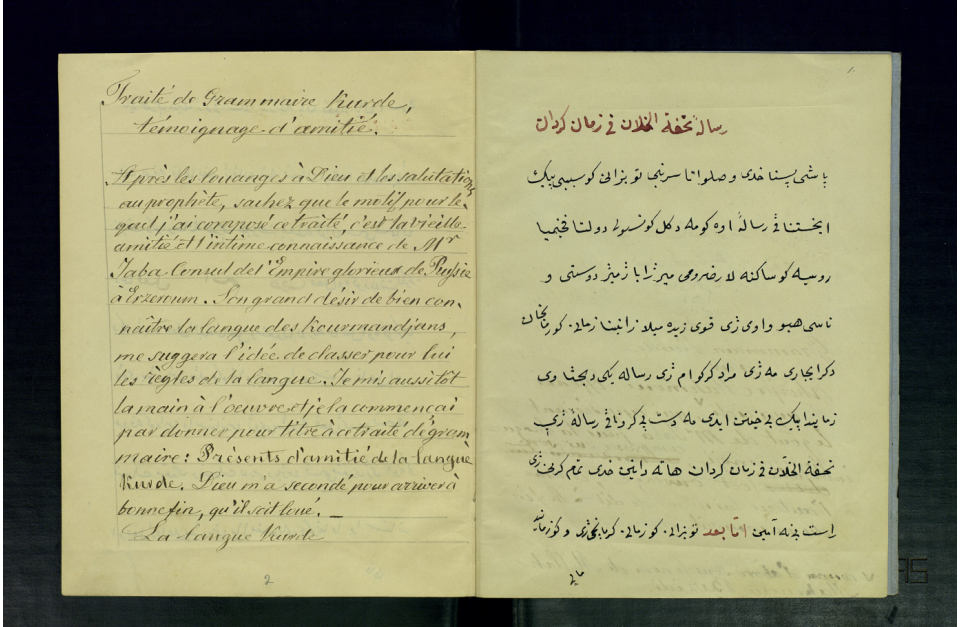 Traité de Grammaire Kurde,
témoignage d'amitié.
Après les louanges à Dieu et les salutations
au prophète, sachez que le motif pour le-
quel j'ai composé ce traité, c'est la vieille
amitié et l'intime connaissance de Mr
Jaba Consul de l'Empire glorieux de Russie
à Erzeroum. Son grand désir de bien con-
naître la langue des Kourmandjans,
me suggera l'idée de classer pour lui
les règles de la langue. Je mis aussitôt
la main à l'oeuvre et je la commençai
par donner pour titre à ce traité de gram
maire: Présents d'amitié de la langue
Kurde. Dieu m'a secondé pour arriver à
bonne fin, qu'il soit loué. _
La langue Kurde
2
1.
رسالهٔ تحفة الخلان في زمان كردان
پاشى پسنا خدى و صلواتا سرنبى تو بزانى كو سببى پيك
ايخستنا فى رسالهٔ اوه كو مه دكل كونسولى دولتا فخيميا
روسيه كو ساكنه لارضرومى ميرزا يابا ژ ميژ دوستى و
ناسى هبو و اوى ژى قوى زيده ميلا زانينا زمانى كورمانجان
دكر ايجارى مه ژى مراد كر كو ام ژى رساله يكى دبحثا وى
زمانيدا پيك بى خينن ايدى مه دست پى كر و ناڤى رسالهٔ ژى
تحفة الخلان في زمان كردان هاته دانين خدى تمام كرنى ژى
راست بينه آمين اما بعد تو بزانى كو زمانى كرمانجى ژى و كو زمانيد
مايى